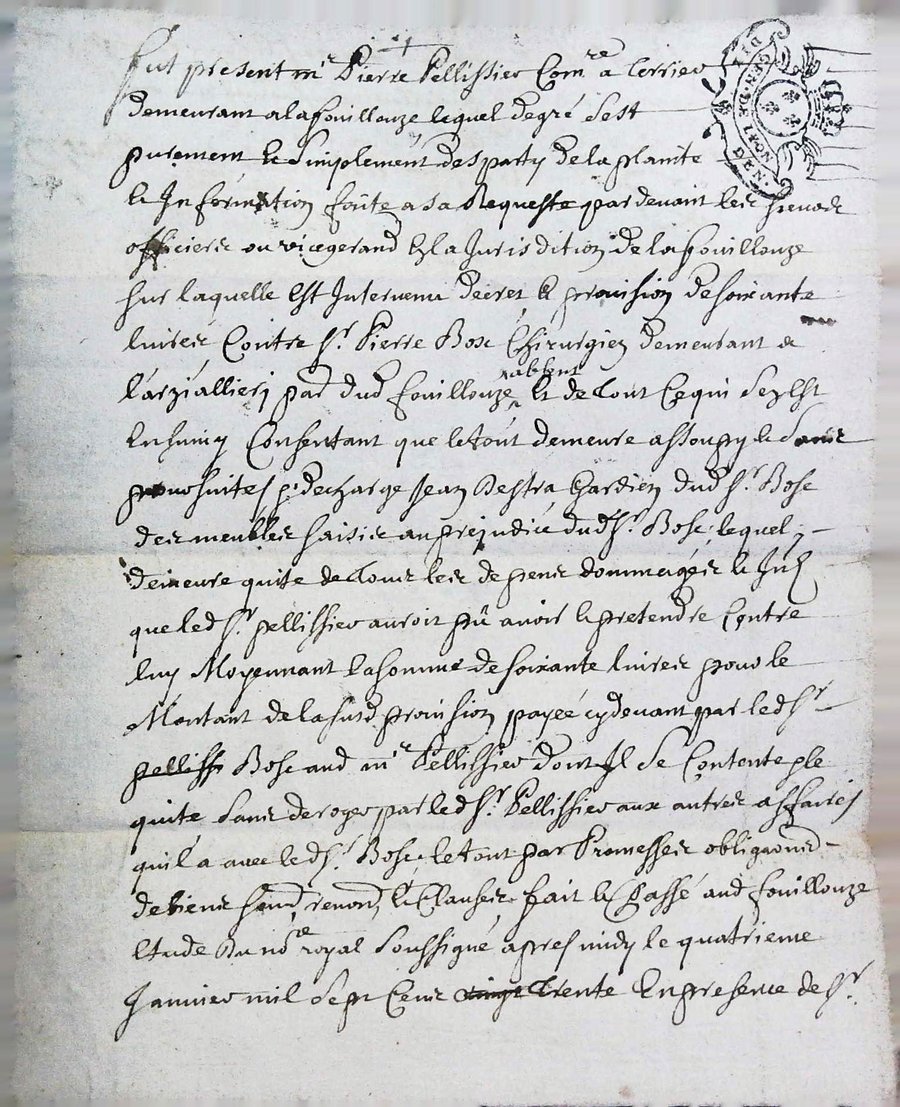 fut present mr Pierre Pellissier Comre a terrier
GEN. DE LYON DEN.
demeurant a lafouillouze lequel de gré sest
purement et simplement desparty de la plainte
et Information faite a sa Requeste par devant les
officiers ou vicegerand en la Jurisdition de lafouillouze
sur laquelle est Intervenu decret et provision de soixante
livres Contre sr. Pierre Bose Chirurgien demeurant a
absent
larziallier par dud fouillouze et de tout Ce qui sen est
Ensuivy Consentant que le tout demeure assoupy et sans
poursuites pr. decharge Jean Destra Gardien dud sr. Bose
des meubles saisis au prejudice dud sr. Bose, lequel
demeure quite de tous les depens dommages et Inst
que led sr. pellissier auroit pû avoir et pretendre Contre
luy Moyennant la somme de soixante livres pour le
Montant de la susd provision payée cy devant par led sr
pelliss Bose aud mr Pellissier dont Il se Contente et le
quite sans deroger par led sr. Pellissier aux autres affaires
quil a avec led sr. Bose, le tout par Promesses obligaons
de biens soumd, renond, et Clauses fait et Passé aud fouillouze
Etude du nore royal soussigné apres midy le quatrieme
Janvier mil sept Cens vingt trente En presence de sr.